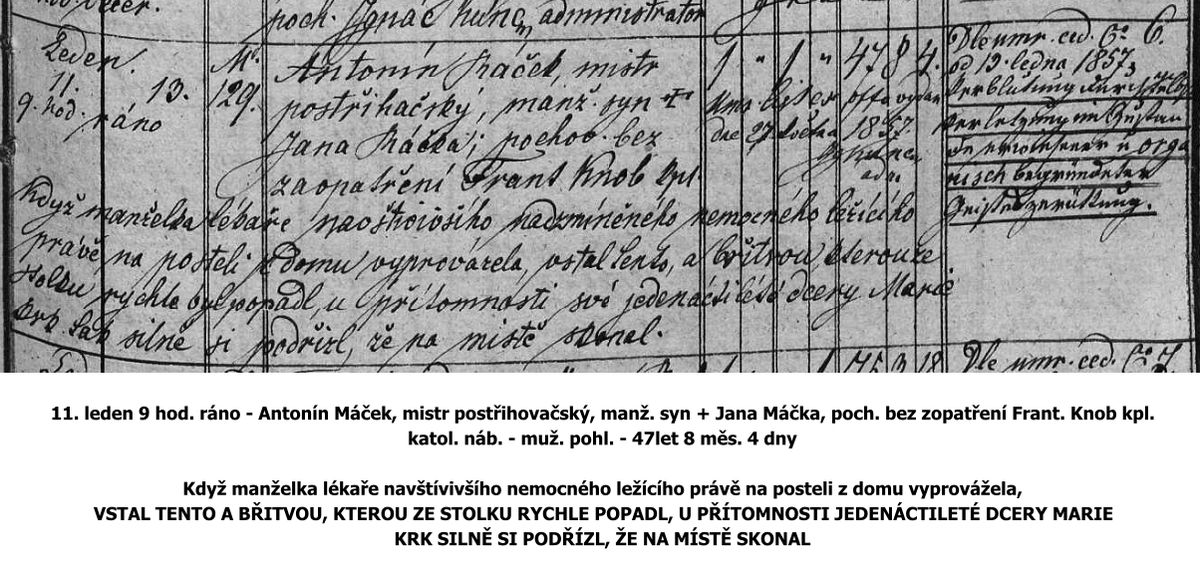 poch. Ignác Kunc, administrator
Leden.
11.
9. hod. ráno
13.
Nº.
129.
Antonín Ráček, mistr
postřihačský, manž. syn +
Jana Ráčka; pochov. bez
zaopatření Frant. Knob kpl.
1 " 1 " 47 8 4.
dne 27. května 1857
Dle umr. ced. Čo 6.
od 13. ledna 1857,
Verblutung durch Hals
verletzung im Zustan
de einer orga
nisch begründeter
Geisteszerüttung.
Když manželka lékaře navštívivšího nadzmíněného nemocného ležícího
právě na posteli z domu vyprovázela, vstal tento, a břitvou kterou ze
stolku rychle byl popadl, u přítomnosti své jedenáctileté dcery Marie
krk tak silně si podřízl, že na místě skonal.
1 1 75 3 18
Dle umr. ced. Čo 7.
11. leden 9 hod. ráno - Antonín Máček, mistr postřihovačský, manž. syn + Jana Máčka, poch. bez zopatření Frant. Knob kpl.
katol. náb. - muž. pohl. - 47let 8 měs. 4 dny
Když manželka lékaře navštívivšího nemocného ležícího právě na posteli z domu vyprovážela,
VSTAL TENTO A BŘITVOU, KTEROU ZE STOLKU RYCHLE POPADL, U PŘÍTOMNOSTI JEDENÁCTILETÉ DCERY MARIE
KRK SILNĚ SI PODŘÍZL, ŽE NA MÍSTĚ SKONAL